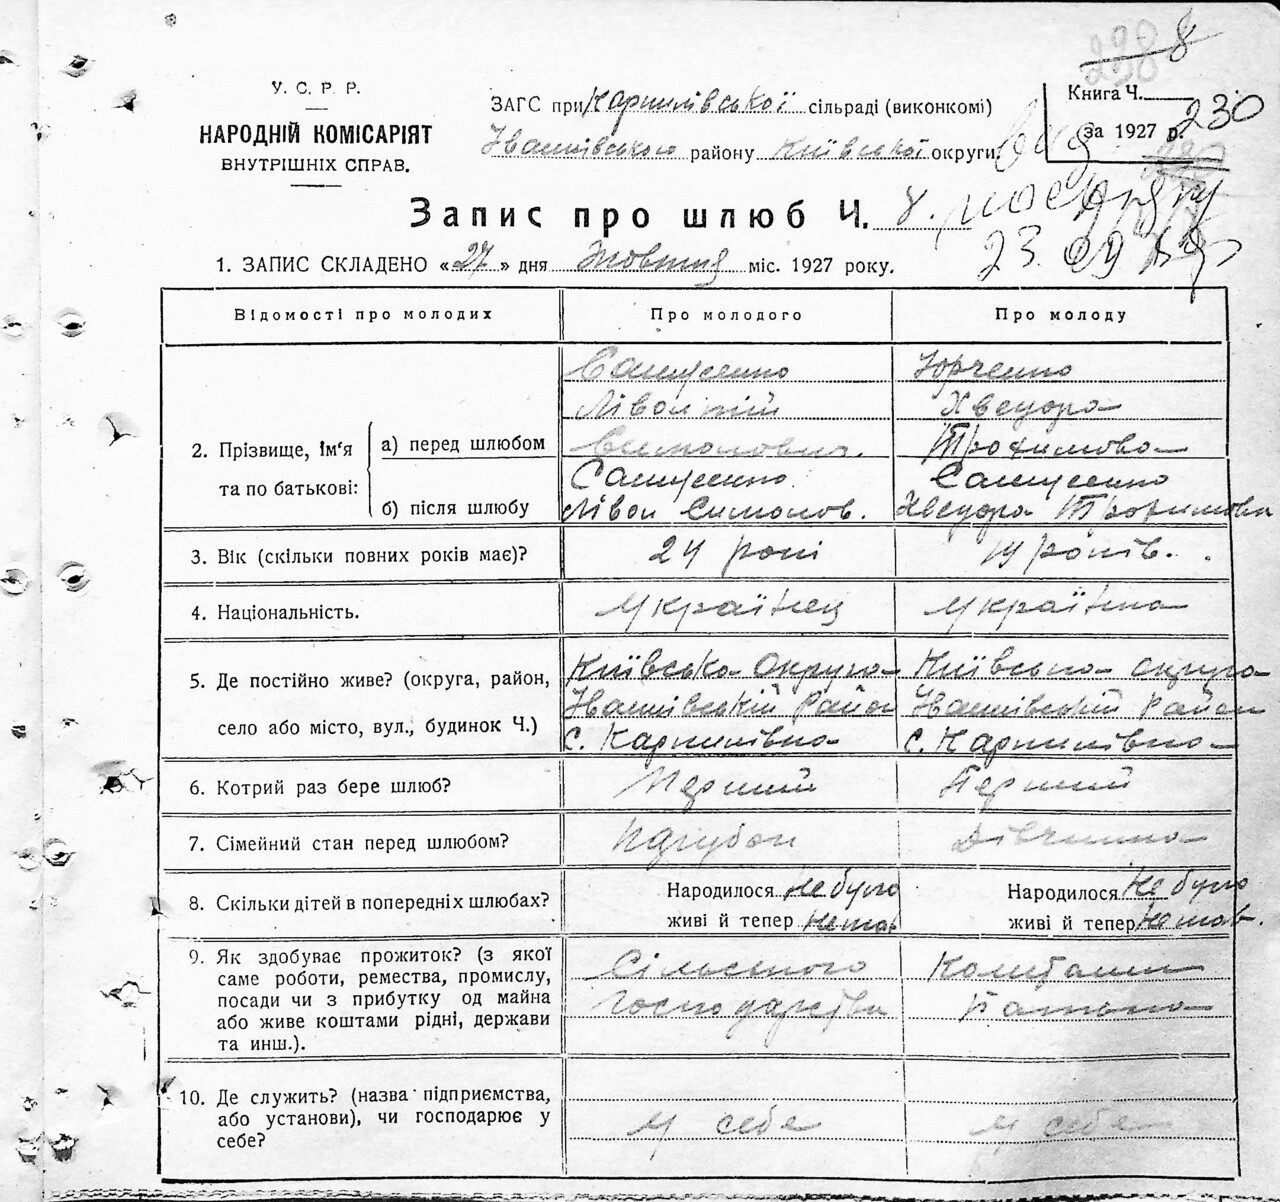 238 8
У. С. Р. Р.
НАРОДНІЙ КОМІСАРІЯТ
ВНУТРІШНІХ СПРАВ.
ЗАГС при Карпилівської сільраді (виконкомі)
Іванківського району Київської округи.
Книга Ч.
за 1927 р.
230
Запис про шлюб Ч. 8.
23. 09
1. ЗАПИС СКЛАДЕНО «27» дня Жовтня міс. 1927 року.
Відомості про молодих Про молодого Про молоду
2. Прізвище, ім'я та по батькові:
а) перед шлюбом
Юрченко
Хведора
Симонович. Трохимова
б) після шлюбу
Лівон Симонов. Хведора Трохимова
3. Вік (скільки повних років має)? 24 рокі 19 років.
4. Національність. Українец Українка
5. Де постійно живе? (округа, район, село або місто, вул., будинок Ч.)
Київська Округа Київська округа
Іванківський Район Іванківський Район
с. Карпилівка с. Карпилівка
6. Котрий раз бере шлюб? Перший Перший
7. Сімейний стан перед шлюбом? Парубок Дівчина
8. Скільки дітей в попередніх шлюбах?
Народилося не було Народилося не було
живі й тепер немає живі й тепер
9. Як здобуває прожиток? (з якої
саме роботи, ремества, промислу,
посади чи з прибутку од майна
або живе коштами рідні, держави
та инш.).
Сільського Коштами
Господарства Батька
10. Де служить? (назва підприємства,
або установи), чи господарює у
себе?
У себе У себе